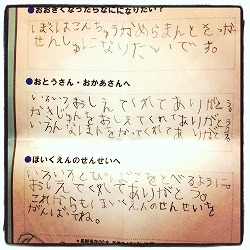 ●おおきくなったらなにになりたい？
ぼくはこんちゅうかめらまんとさっか
せんしゅになりたいです。
●おとうさん・おかあさんへ
いろいろおしえてくれてありがとう
かきじゅんをおしえてくれてありがとう
いろんなほんをかってくれてありがとう
●ほいくえんのせんせいへ
いろいろとびばこをとべるように
おしえてくれてありがとう。
これからもほいくえんのせんせいを
がんばってね。